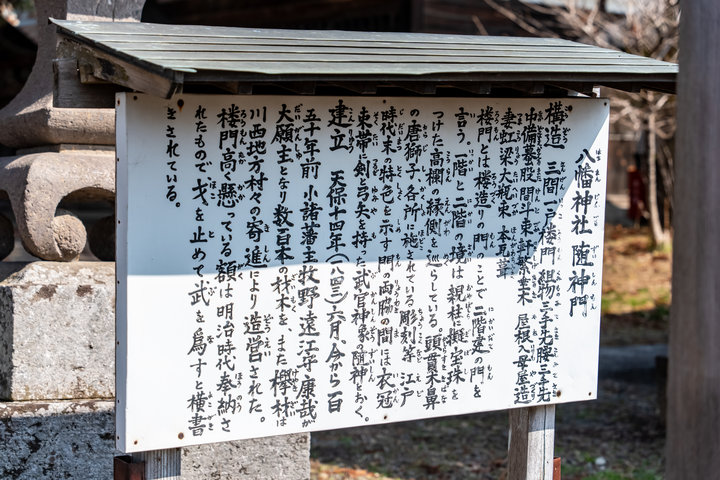 八幡神社 随神門
構造 三間一戸楼門 組物三手先腰三手先
中備蟇股間斗束詩繁垂木 屋根入母屋造
妻虹梁大瓶束 本草葺
楼門とは楼造りの門のことで二階建の門を
言う。一階と二階の境は親柱に擬宝珠を
つけた高欄の縁側を廻らしている。頭貫木鼻
の唐獅子、各所に施されている彫刻等 江戸
時代末の特色を示す門の両脇の間には衣冠
束帯に剣と弓矢を持た武官神象の随神をおく。
建立 天保十四年(一八四三)六月、今から一百
五十年前 小諸藩主牧野遠江守康哉が
大願主となり数百本の材木を また欅材は
川西地方村々の寄進により 造営された。
楼門高く懸っている額は明治時代奉納さ
れたもので戈を止めて武を為すと横書
きされている。